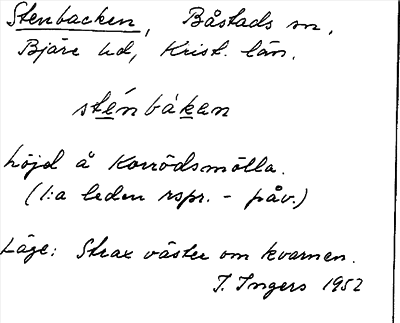 Stenbacken, Båstads sn,
Bjäre hd, Krist. län.
sténbàken
höjd å Korrödsmölla.
(1:a leden rspr. - påv.)
Läge: Strax väster om kvarnen.
I. Ingers 1952